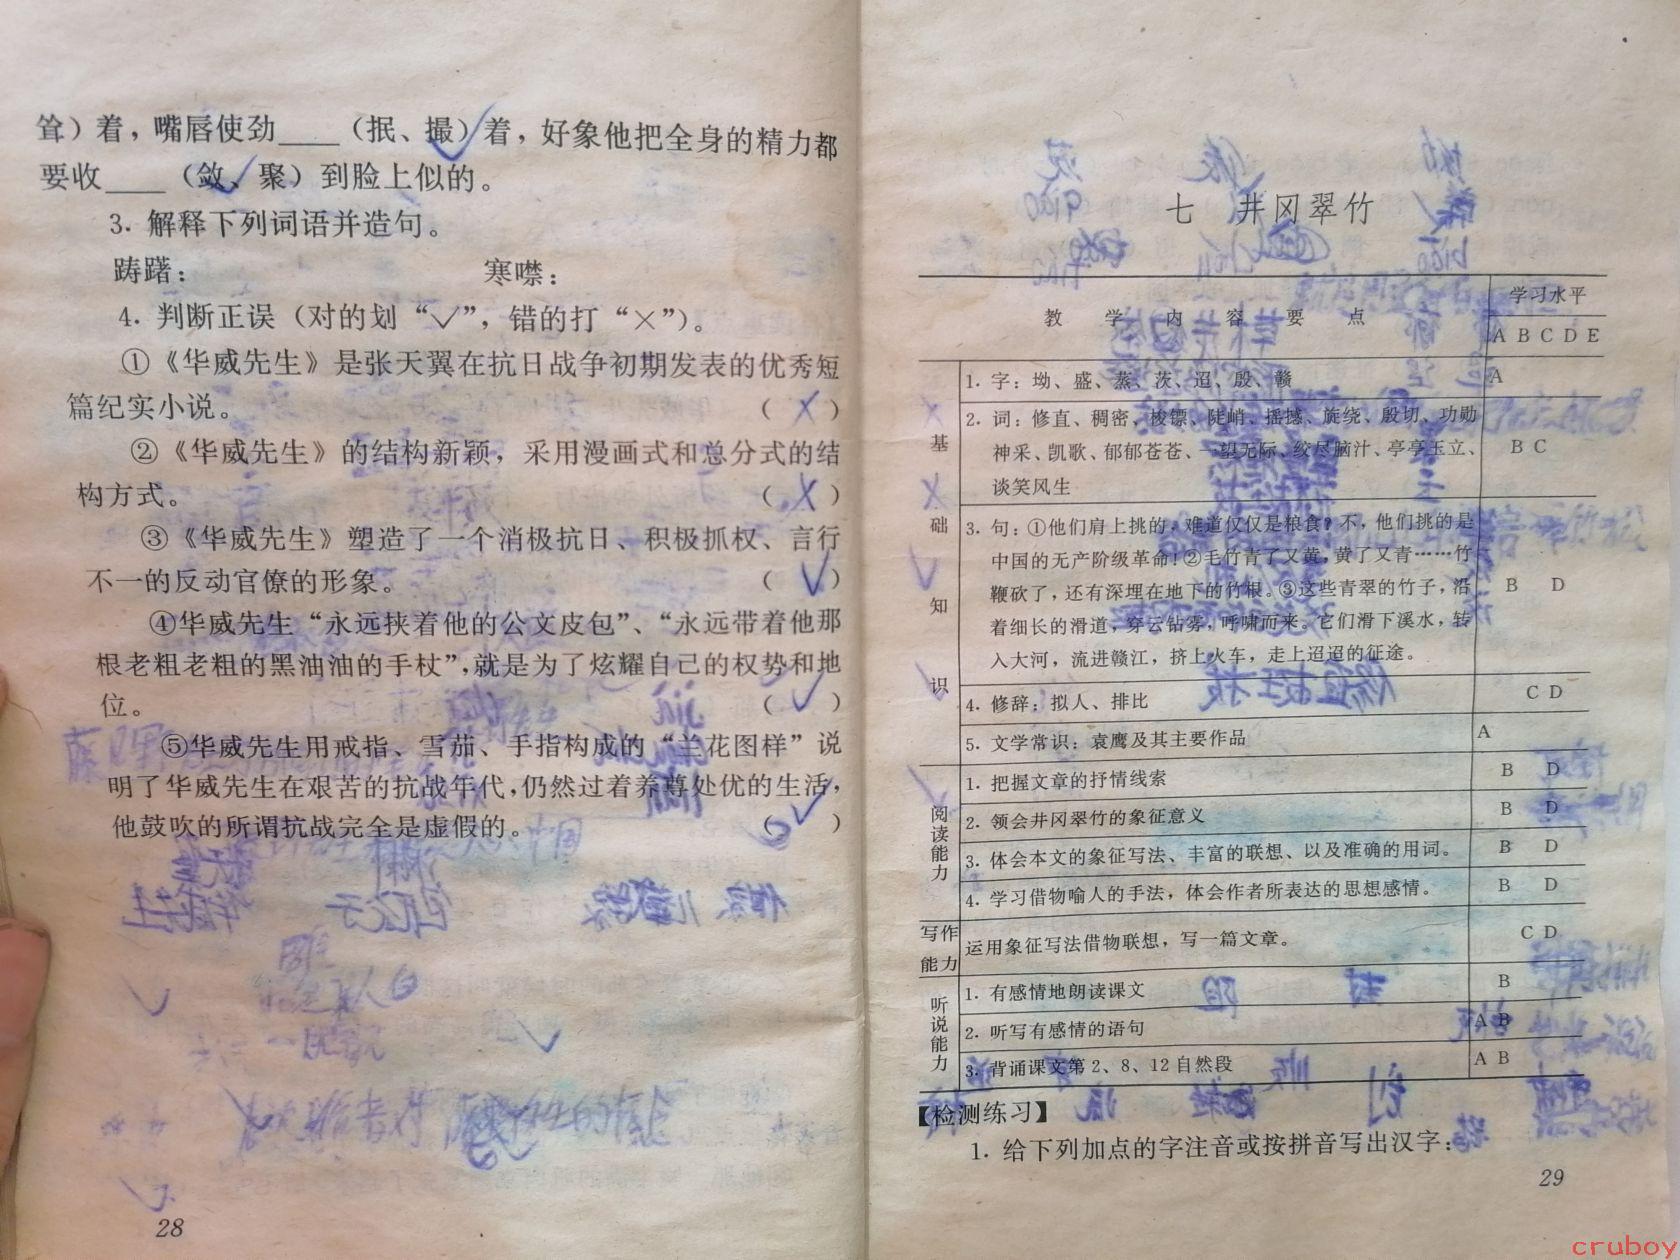 耸）着，嘴唇使劲____（抿、撮）着，好象他把全身的精力都
要收____（敛、聚）到脸上似的。
3. 解释下列词语并造句。
踌躇：　寒噤：
4. 判断正误（对的划“✓”，错的打“×”）。
①《华威先生》是张天翼在抗日战争初期发表的优秀短
篇纪实小说。（×）
②《华威先生》的结构新颖，采用漫画式和总分式的结
构方式。（×）
③《华威先生》塑造了一个消极抗日、积极抓权、言行
不一的反动官僚的形象。（✓）
④华威先生“永远挟着他的公文皮包”、“永远带着他那
根老粗老粗的黑油油的手杖”，就是为了炫耀自己的权势和地
位。（✓）
⑤华威先生用戒指、雪茄、手指构成的“兰花图样”说
明了华威先生在艰苦的抗战年代，仍然过着养尊处优的生活，
他鼓吹的所谓抗战完全是虚假的。（✓）
28
七　井冈翠竹
教学内容要点　学习水平
A B C D E
基础知识
1. 字：坳、盛、蒸、茨、迢、殷、赣　A
2. 词：修直、稠密、梭镖、陡峭、摇撼、旋绕、殷切、功勋
神采、凯歌、郁郁苍苍、一望无际、绞尽脑汁、亭亭玉立、　B C
谈笑风生
3. 句：①他们肩上挑的，难道仅仅是粮食？不，他们挑的是
中国的无产阶级革命！②毛竹青了又黄，黄了又青……竹
鞭砍了，还有深埋在地下的竹根。③这些青翠的竹子，沿　B D
着细长的滑道，穿云钻雾，呼啸而来。它们滑下溪水，转
入大河，流进赣江，挤上火车，走上迢迢的征途。
4. 修辞：拟人、排比　C D
5. 文学常识：袁鹰及其主要作品　A
阅读能力
1. 把握文章的抒情线索　B D
2. 领会井冈翠竹的象征意义　B D
3. 体会本文的象征写法、丰富的联想、以及准确的用词。　B D
4. 学习借物喻人的手法，体会作者所表达的思想感情。　B D
写作能力
运用象征写法借物联想，写一篇文章。　C D
听说能力
1. 有感情地朗读课文　B
2. 听写有感情的语句　A B
3. 背诵课文第 2、8、12 自然段　A B
【检测练习】
1. 给下列加点的字注音或按拼音写出汉字：
29
cruboy